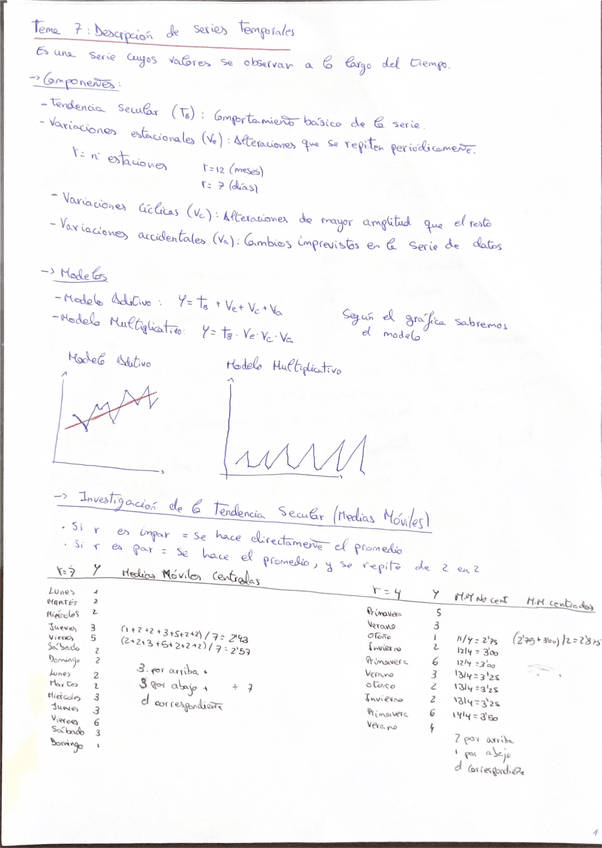 Tema 7: Descripción de series Temporales
Es una serie cuyos valores se observan a lo largo del tiempo.
→ Componentes:
- Tendencia Secular (TB): Comportamiento básico de la serie.
- Variaciones estacionales (Ve): Alteraciones que se repiten periódicamente.
r = nº estaciones r=12 (meses)
r= 7 (días)
- Variaciones Cíclicas (Vc): Alteraciones de mayor amplitud que el resto
- Variaciones accidentales (Va): Cambios imprevistos en la serie de datos
→ Modelos
- Modelo Aditivo: Y = TB + Ve + Vc + Va
- Modelo Multiplicativo: Y = TB · Ve · Vc · Va
Según el gráfica sabremos
el modelo
Modelo Aditivo Modelo Multiplicativo
→ Investigación de la Tendencia Secular (Medias Móviles)
· Si r es impar = se hace directamente el promedio
· Si r es par = se hace el promedio, y se repite de 2 en 2
r=7 Y Medias Móviles Centradas
Lunes 1
Martes 2
Miércoles 2
Jueves 3 (1+2+2+3+5+2+2)/7 = 2'43
Viernes 5 (2+2+3+5+2+2+2)/7 = 2'57
Sábado 2
Domingo 2
Lunes 2
Martes 2
Miércoles 3
Jueves 3
Viernes 6
Sábado 3
Domingo 1
3 por arriba +
3 por abajo + ÷ 7
el correspondiente
r = 4 Y M.M No cent M.M centradas
Primavera 5
Verano 3
Otoño 1 11/4 = 2'75 (2'75+3'00)/2 = 2'875
Invierno 2 12/4 = 3'00
Primavera 6 12/4 = 3'00
Verano 3 13/4 = 3'25
Otoño 2 13/4 = 3'25
Invierno 2 13/4 = 3'25
Primavera 6 14/4 = 3'50
Verano 4
2 por arriba
1 por abajo
el correspondiente
1